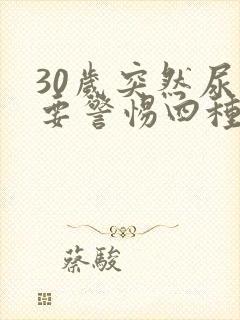 30歲突然尿
要警惕四種
蔡駿